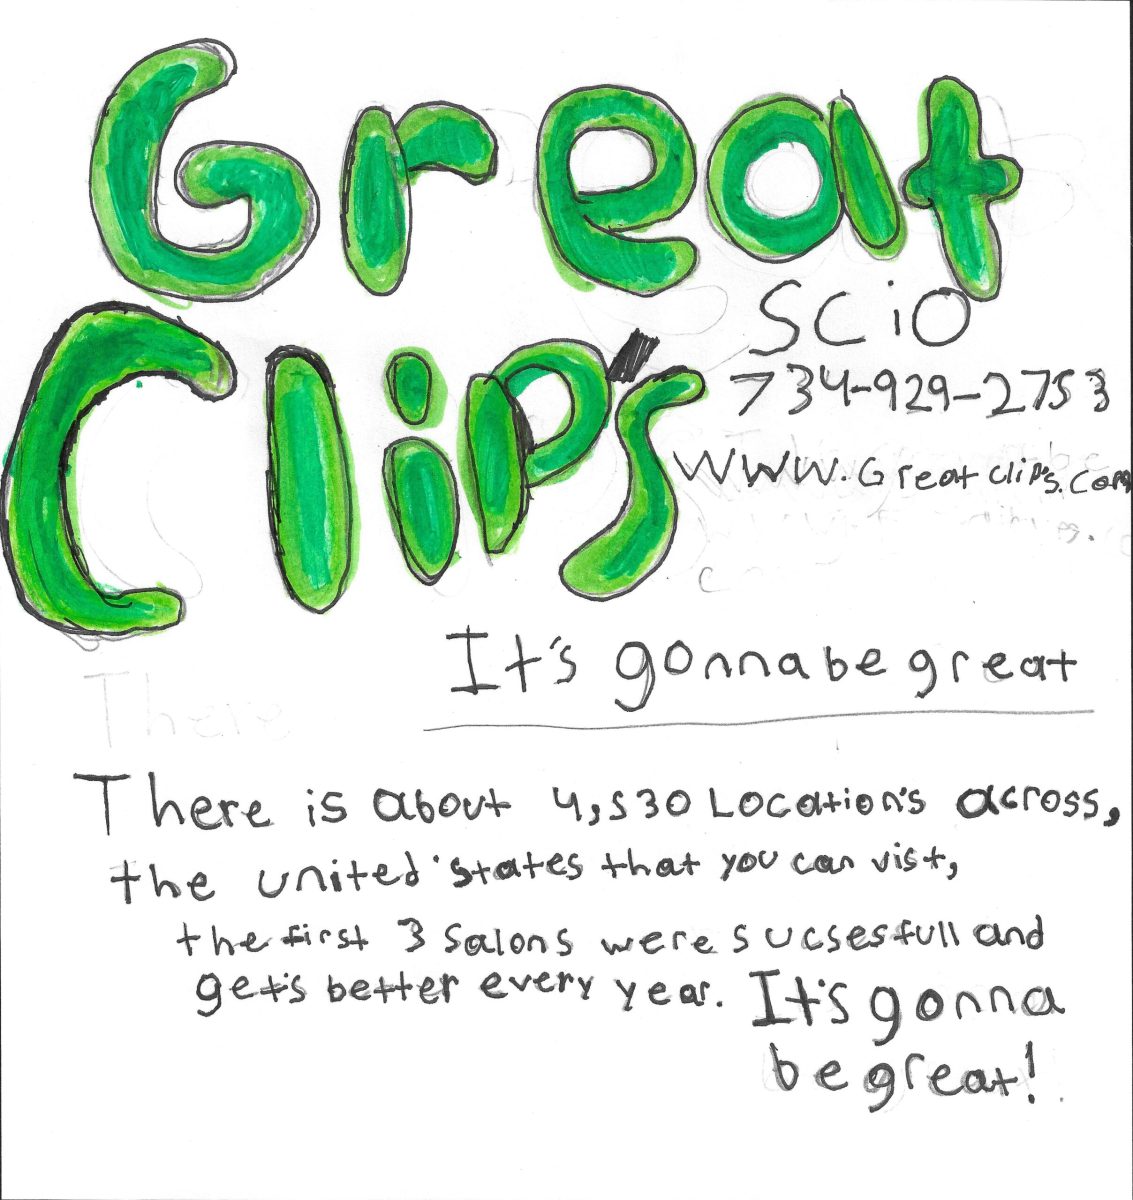 Great
Clip's
SCiO
734-929-2753
WWW.Greatclip's.com
It's gonna be great
There
There is about 4,530 Location's across,
the united states that you can vist,
the first 3 salons were sucsesfull and
get's better every year. It's gonna
be great!